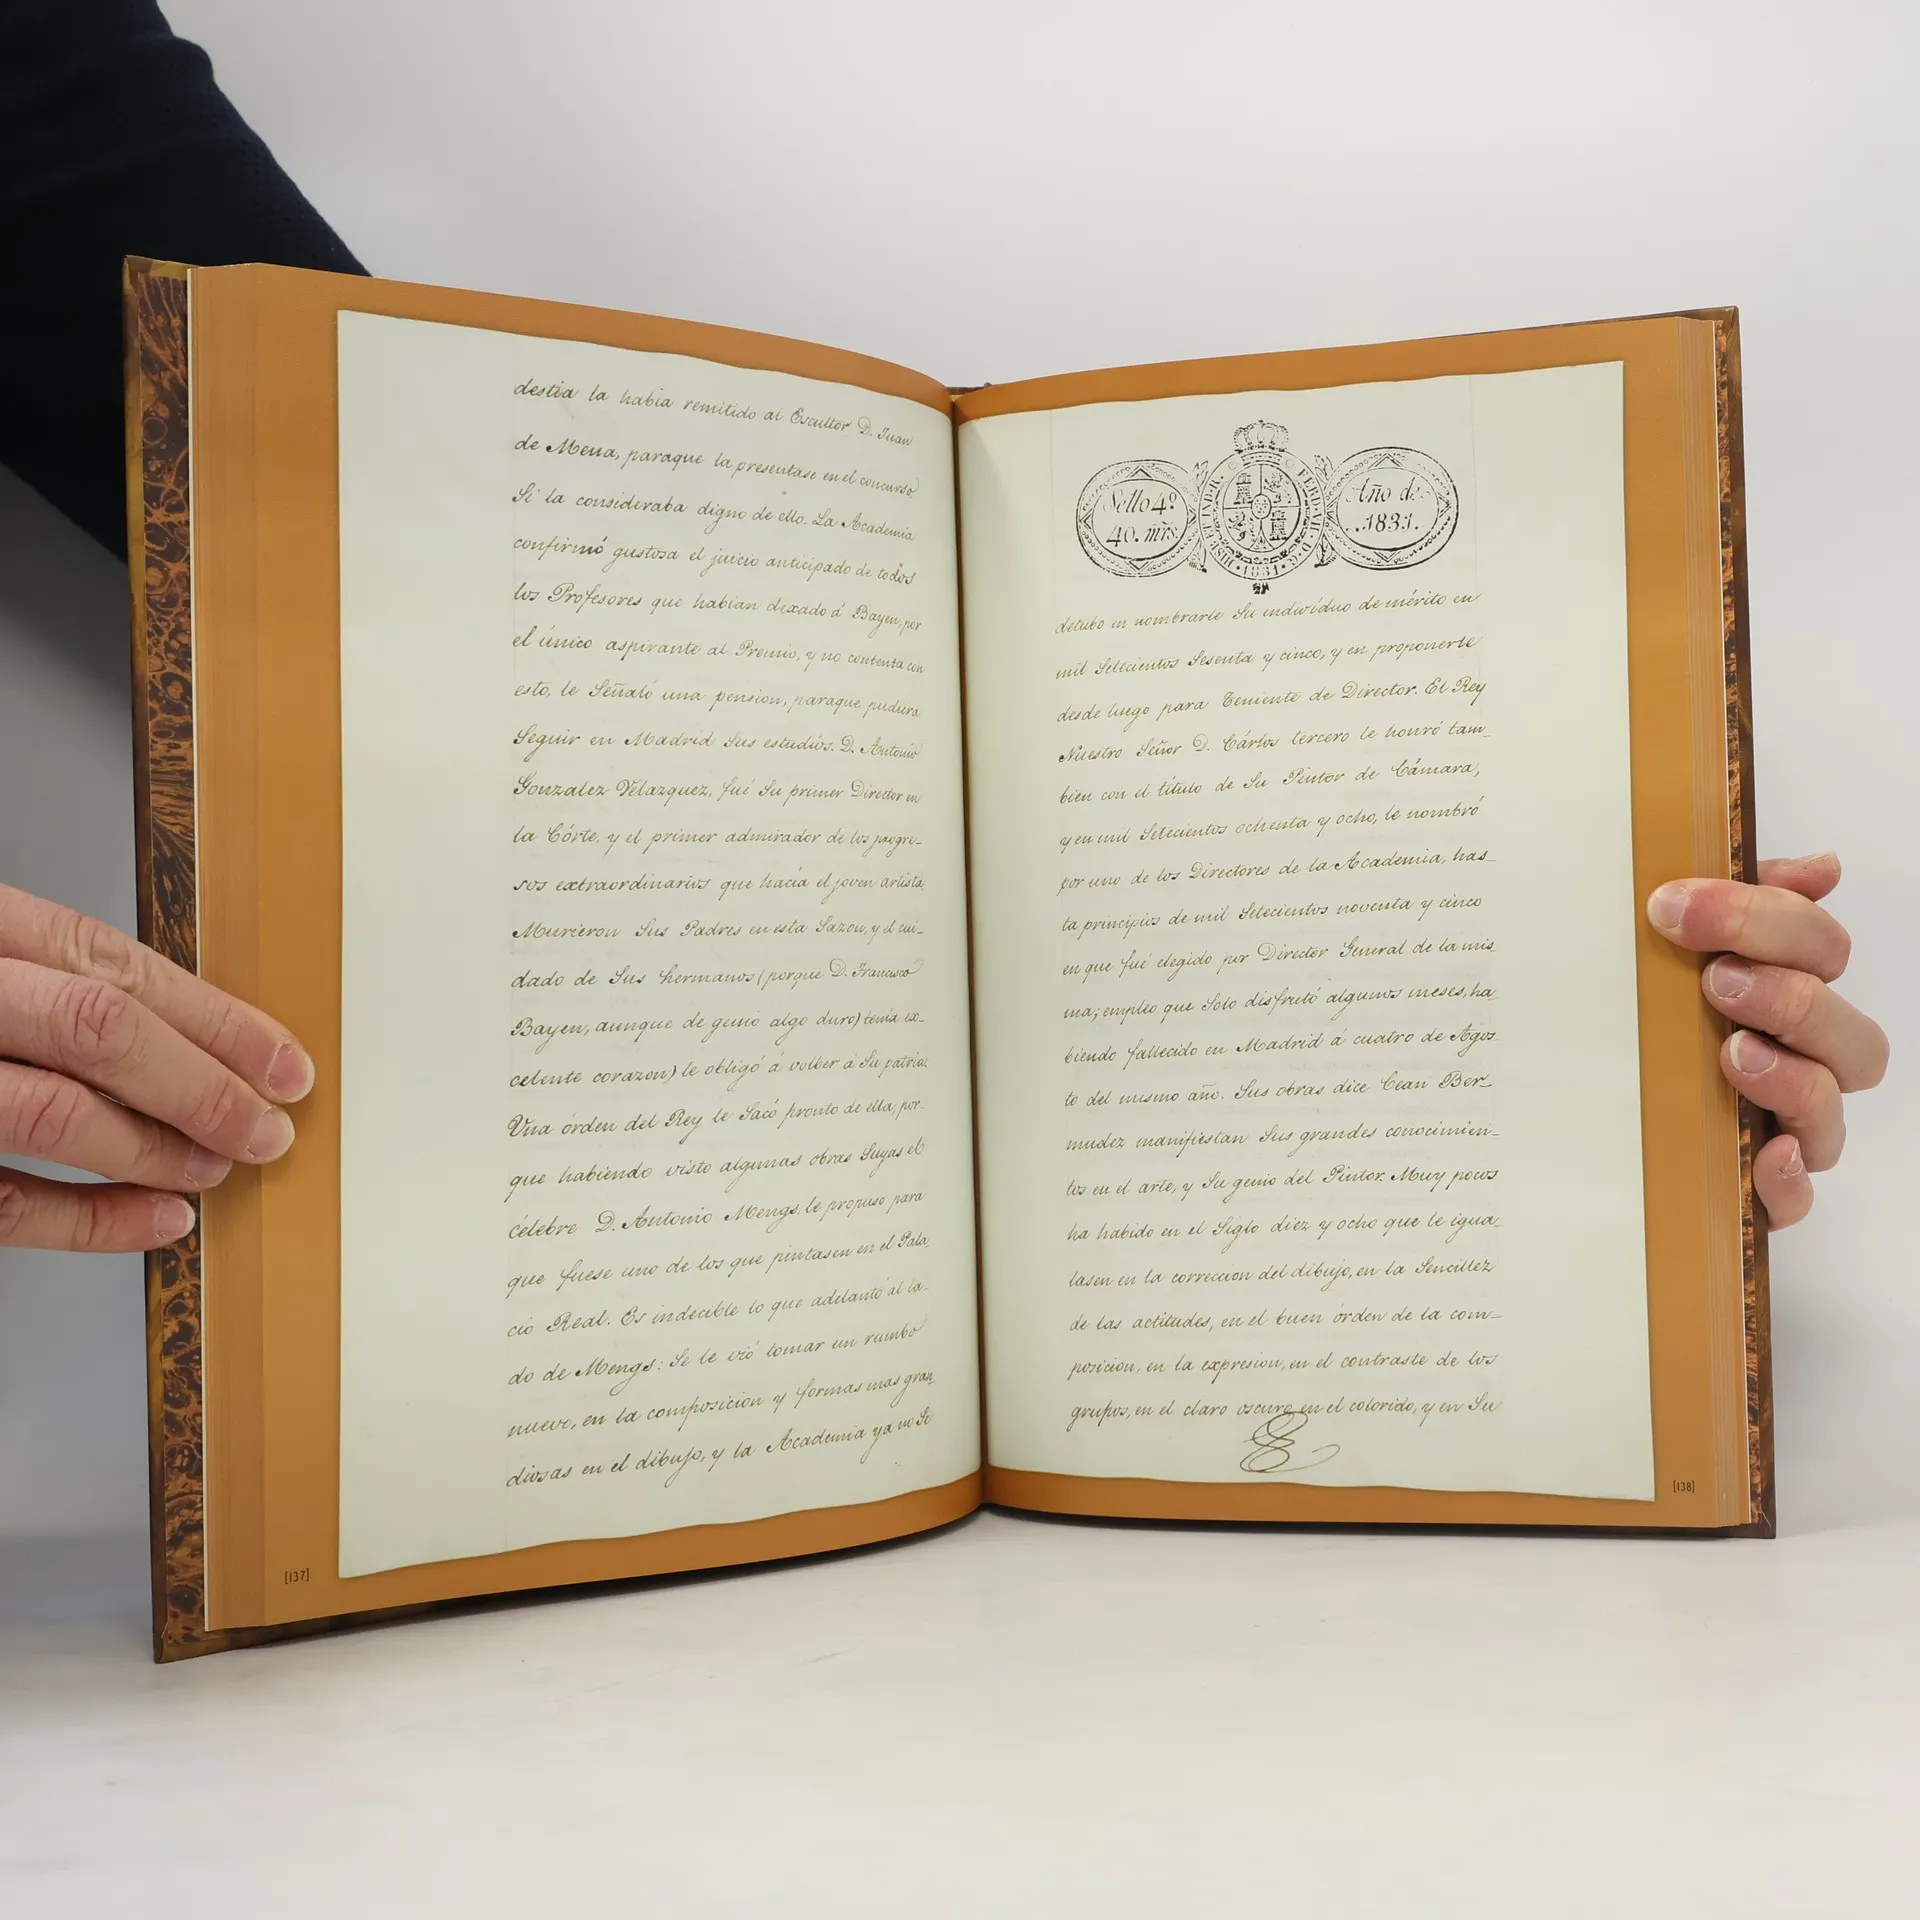 destia la habia remitido al Escultor D. Juan
de Mena, paraque la presentase en el concurso
Si la consideraba digno de ello. La Academia
confirmó gustosa el juicio anticipado de todos
los Profesores que habian dexado á Bayeu, por
el único aspirante al Premio, y no contenta con
esto, le Señaló una pension, paraque pudiera
Seguir en Madrid Sus estudios. D. Antonio
Gonzalez Velazquez, fué Su primer Director en
la Córte, y el primer admirador de los progre-
sos extraordinarios que hacia el joven artista.
Murieron Sus Padres en esta Sazon, y el cui-
dado de Sus hermanos (porque D. Francisco
Bayeu, aunque de genio algo duro) tenia ex-
celente corazon) le obligó á volber á Su patria.
Una órden del Rey le Sacó pronto de ella, por-
que habiendo visto algunas obras Suyas el
célebre D. Antonio Mengs, le propuso para
que fuese uno de los que pintasen en el Pala-
cio Real. Es indecible lo que adelantó al la-
do de Mengs: Se le vió tomar un rumbo
nuevo, en la composicion y formas mas gran-
diosas en el dibujo, y la Academia ya no Se
[137]
Sello 4º
40. mrs.
HISP. ET IND. R. FERD. VII. D. G. 1831.
Año de
1831.
detubo en nombrarle Su indivíduo de mérito en
mil Setecientos Sesenta y cinco, y en proponerle
desde luego para Teniente de Director. El Rey
Nuestro Señor D. Cárlos tercero le honró tam-
bien con el título de Su Pintor de Cámara,
y en mil Setecientos ochenta y ocho, le nombró
por uno de los Directores de la Academia, has-
ta principios de mil Setecientos noventa y cinco
en que fué elegido por Director General de la mis-
ma; empleo que Solo disfrutó algunos meses, ha-
biendo fallecido en Madrid á cuatro de Agos-
to del mismo año. Sus obras dice Cean Ber-
mudez manifiestan Sus grandes conocimien-
tos en el arte, y Su genio del Pintor. Muy pocos
ha habido en el Siglo diez y ocho que le igua-
lasen en la correccion del dibujo, en la Sencillez
de las actitudes, en el buen órden de la com-
posicion, en la expresion, en el contraste de los
grupos, en el claro oscuro en el colorido, y en Su
[138]